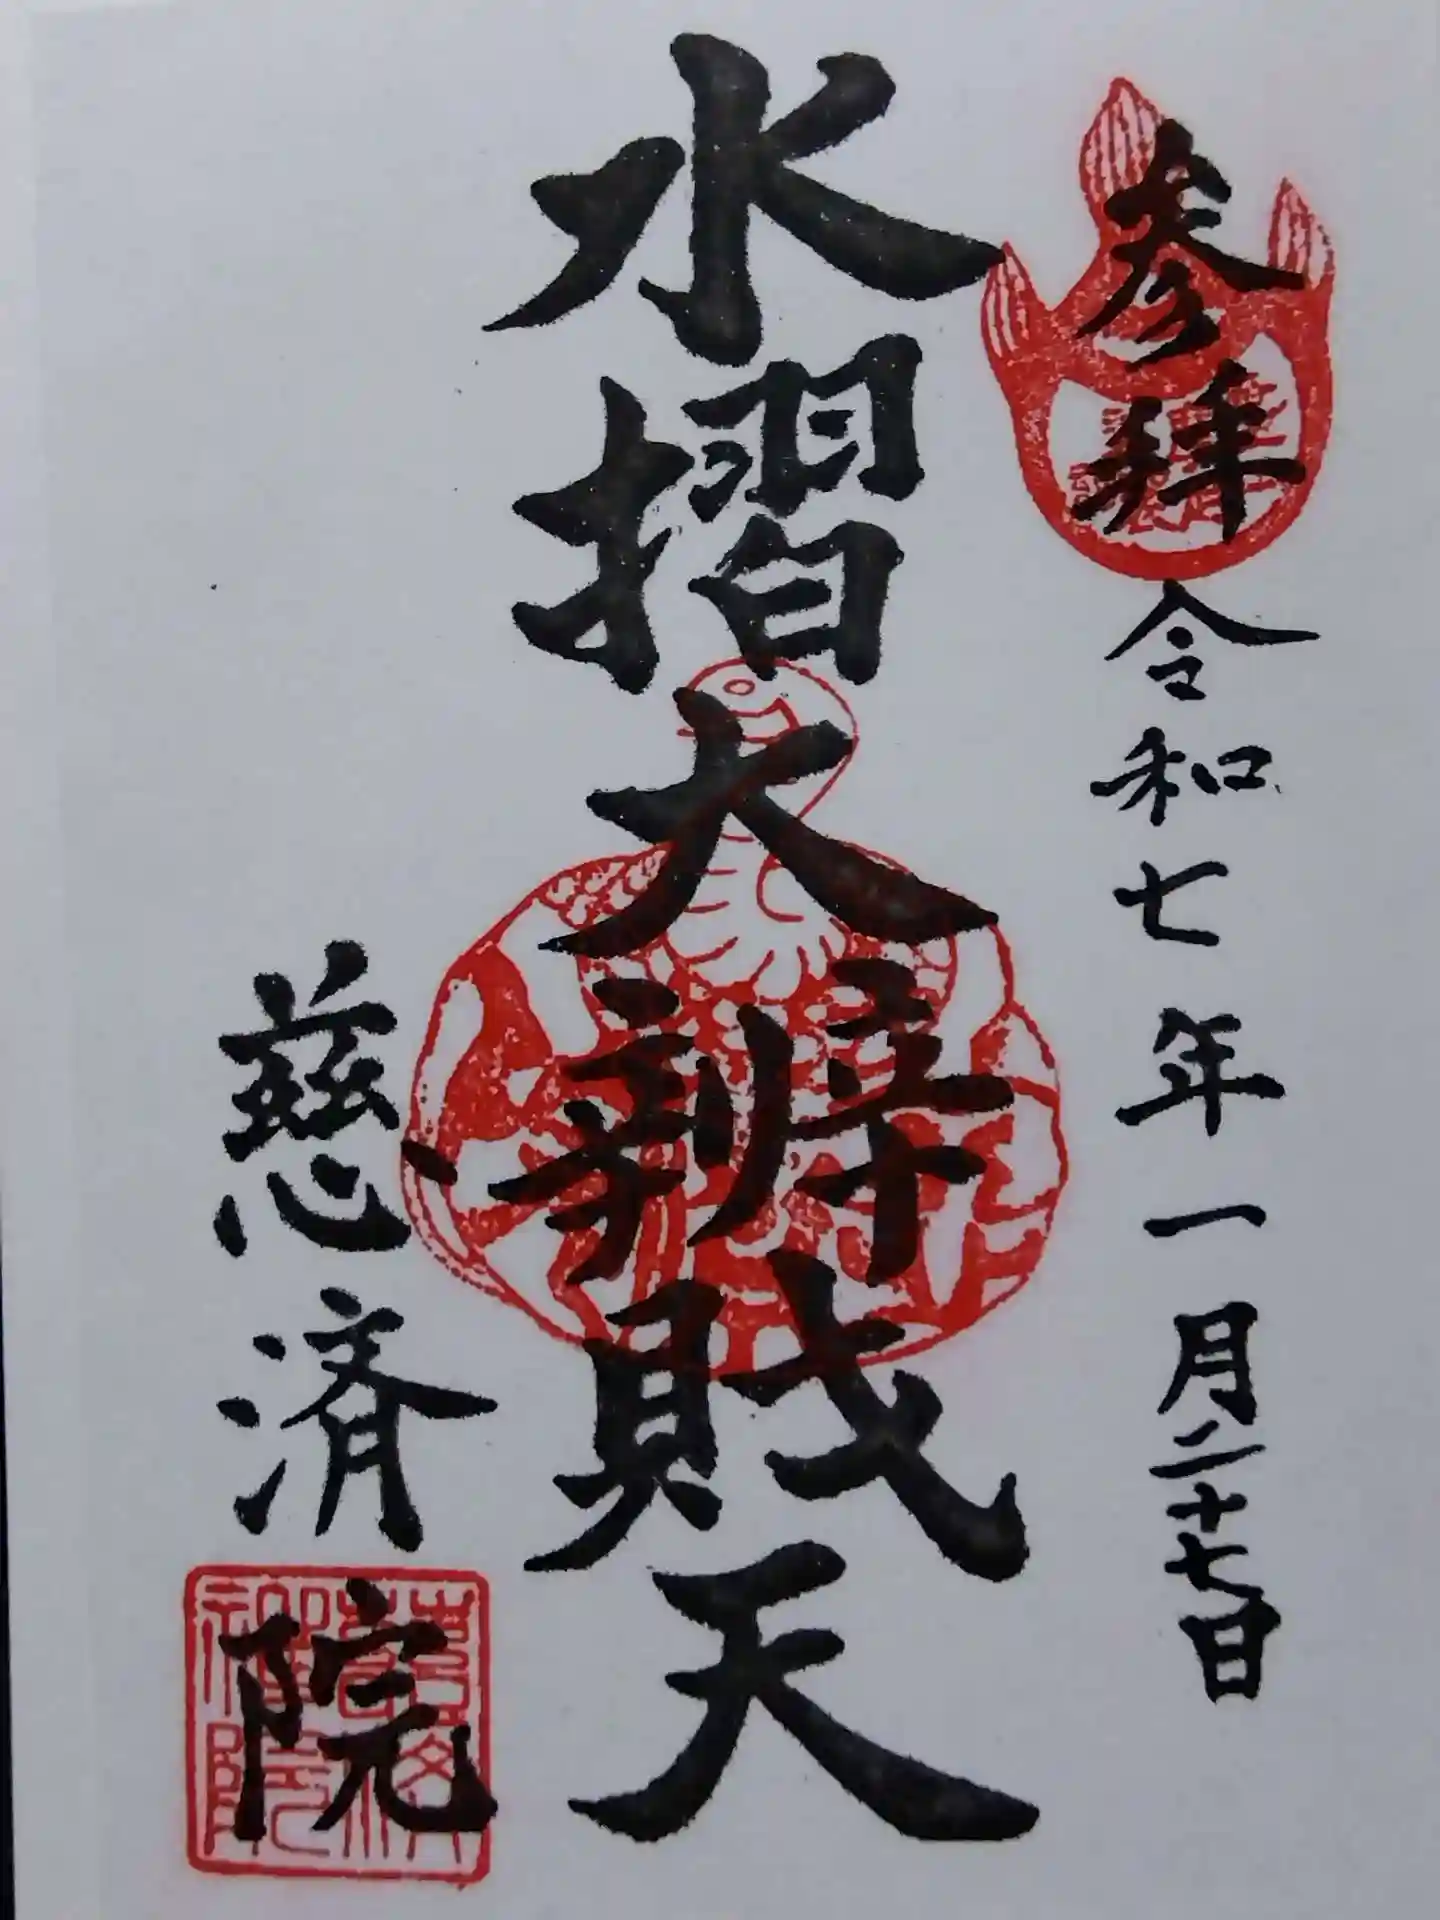 参拝
令和七年一月二十七日
水摺大辨財天
慈済院